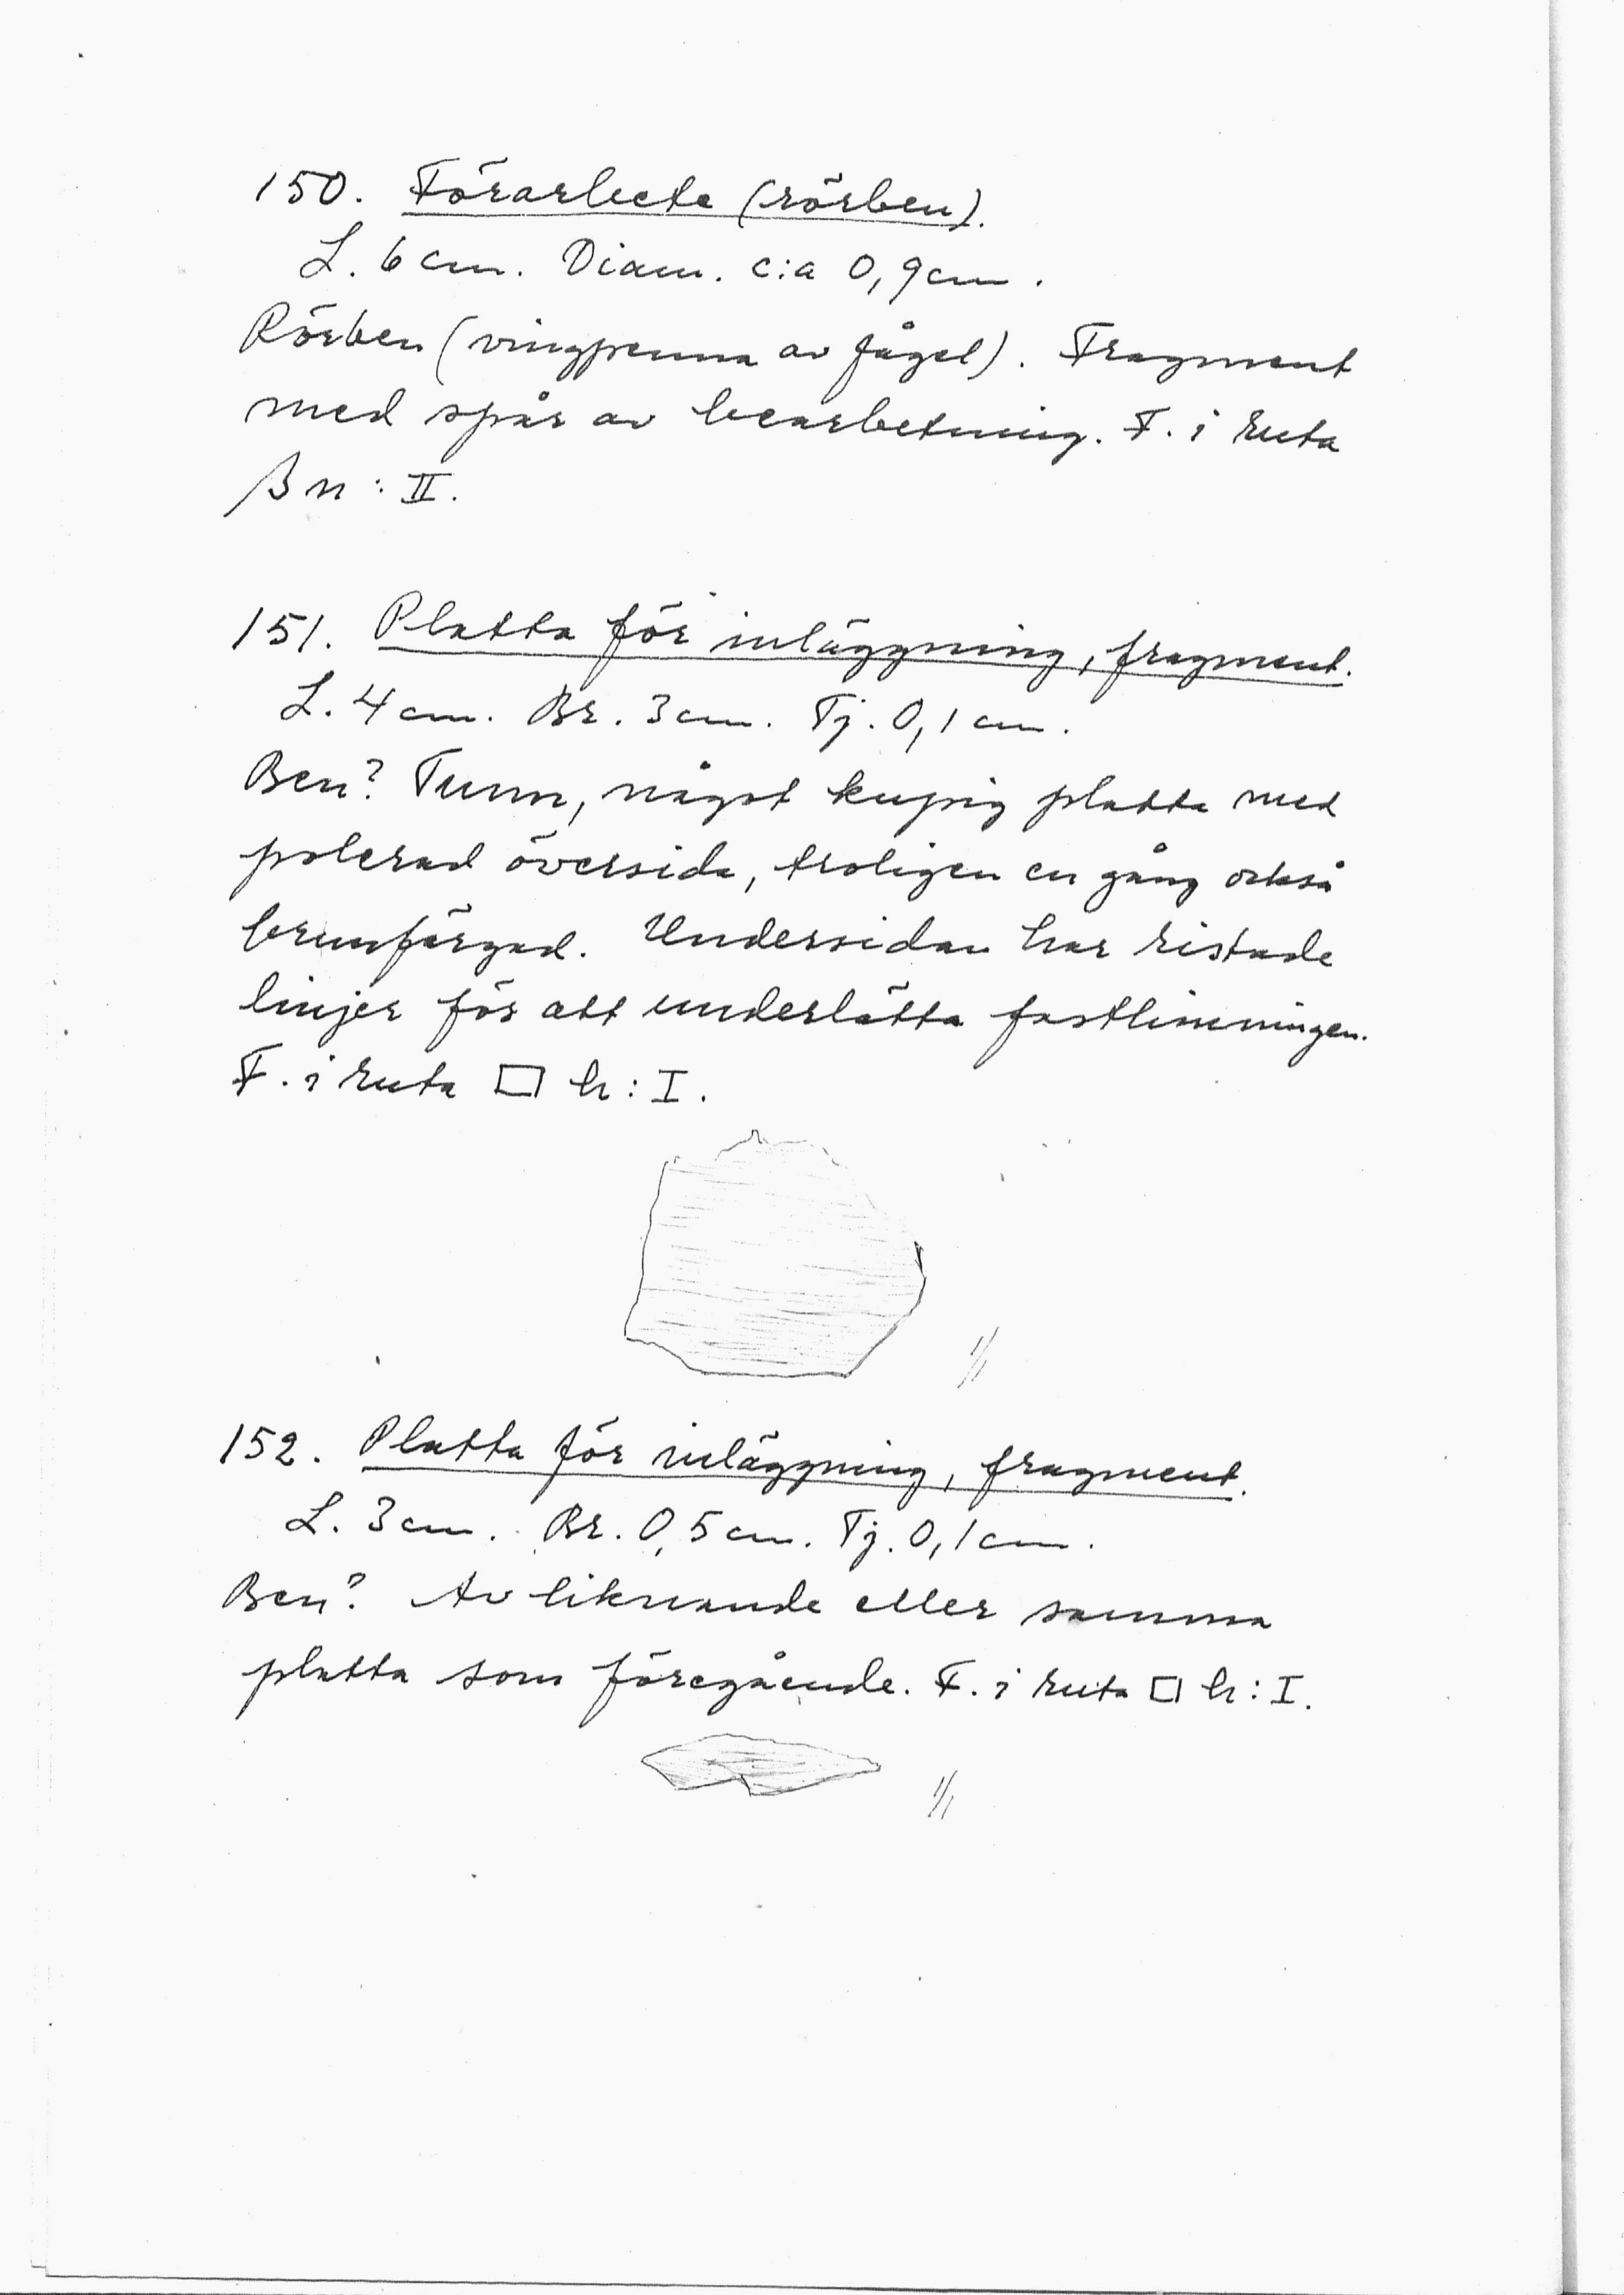 150. Förarbete (rörben).
L. 6 cm. Diam. c:a 0,9 cm.
Rörben (vingpenna av fågel). Fragment
med spår av bearbetning. F. i ruta
βn : II.
151. Platta för inläggning, fragment.
L. 4 cm. Br. 3 cm. Tj. 0,1 cm.
Ben? Tunn, något kupig platta med
polerad översida, troligen en gång också
brunfärgad. Undersidan har ristade
linjer för att underlätta fastlimningen.
F. i ruta □ h : I.
1/1
152. Platta för inläggning, fragment.
L. 3 cm. Br. 0,5 cm. Tj. 0,1 cm.
Ben? Av liknande eller samma
platta som föregående. F. i ruta □ h : I.
1/1